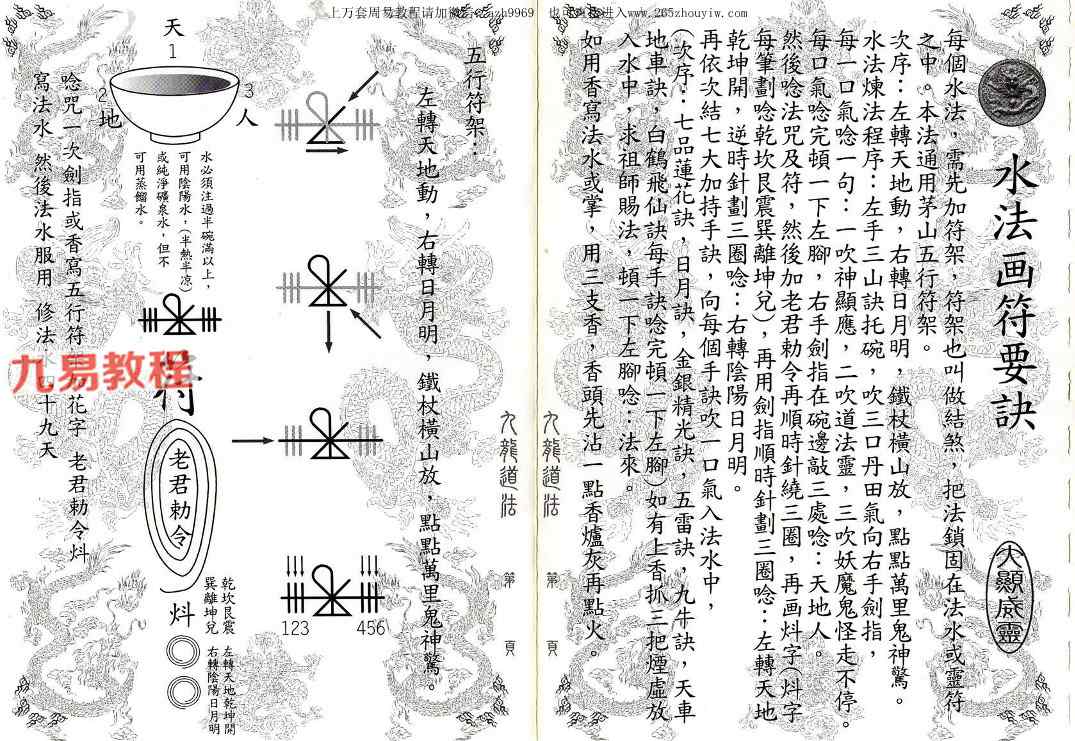 上万套周易教程请加
zh9969
也可直接进入www.265zhouyiw.com
水法画符要訣
大顯威靈
每個水法，需先加符架，符架也叫做結煞，把法鎖固在法水或靈符
之中。本法通用茅山五行符架。
次序：左轉天地動，右轉日月明，鐵杖橫山放，點點萬里鬼神驚。
水法煉法程序：左手三山訣托碗，吹三口丹田氣向右手劍指，
每一口氣唸一句：一吹神顯應，二吹道法靈，三吹妖魔鬼怪走不停。
每口氣唸完頓一下左腳，右手劍指在碗邊敲三處唸：天地人。
然後唸法咒及符，然後加老君勅令再順時針繞三圈，再画炓字（炓字
每筆劃唸乾坎艮震巽離坤兌），再用劍指順時針劃三圈唸：左轉天地
乾坤開，逆時針劃三圈唸：右轉陰陽日月明。
再依次結七大加持手訣，向每個手訣吹一口氣入法水中，
（次序：七品蓮花訣，日月訣，金銀精光訣，五雷訣，九牛訣，天車
地車訣，白鶴飛仙訣每手訣唸完頓一下左腳）如有上香抓三把煙虛放
入水中，求祖師賜法，頓一下左腳唸：法來。
如用香寫法水或掌，用三支香，香頭先沾一點香爐灰再點火。
九龍道法
第
頁
九龍道法
第
頁
五行符架：
左轉天地動，右轉日月明，鐵杖橫山放，點點萬里鬼神驚。
123
456
天
1
2
地
3
人
水必須注過半碗滿以上，
可用陰陽水，（半熱半凉）
或純淨礦泉水，但不
可用蒸餾水。
符
老君勅令
炓
乾坎艮震
巽離坤兌
左轉天地乾坤開
右轉陰陽日月明
唸咒一次劍指或香寫五行符
加花字
老君勅令炓
寫法水
然後法水服用
修法水四十九天
九易教程